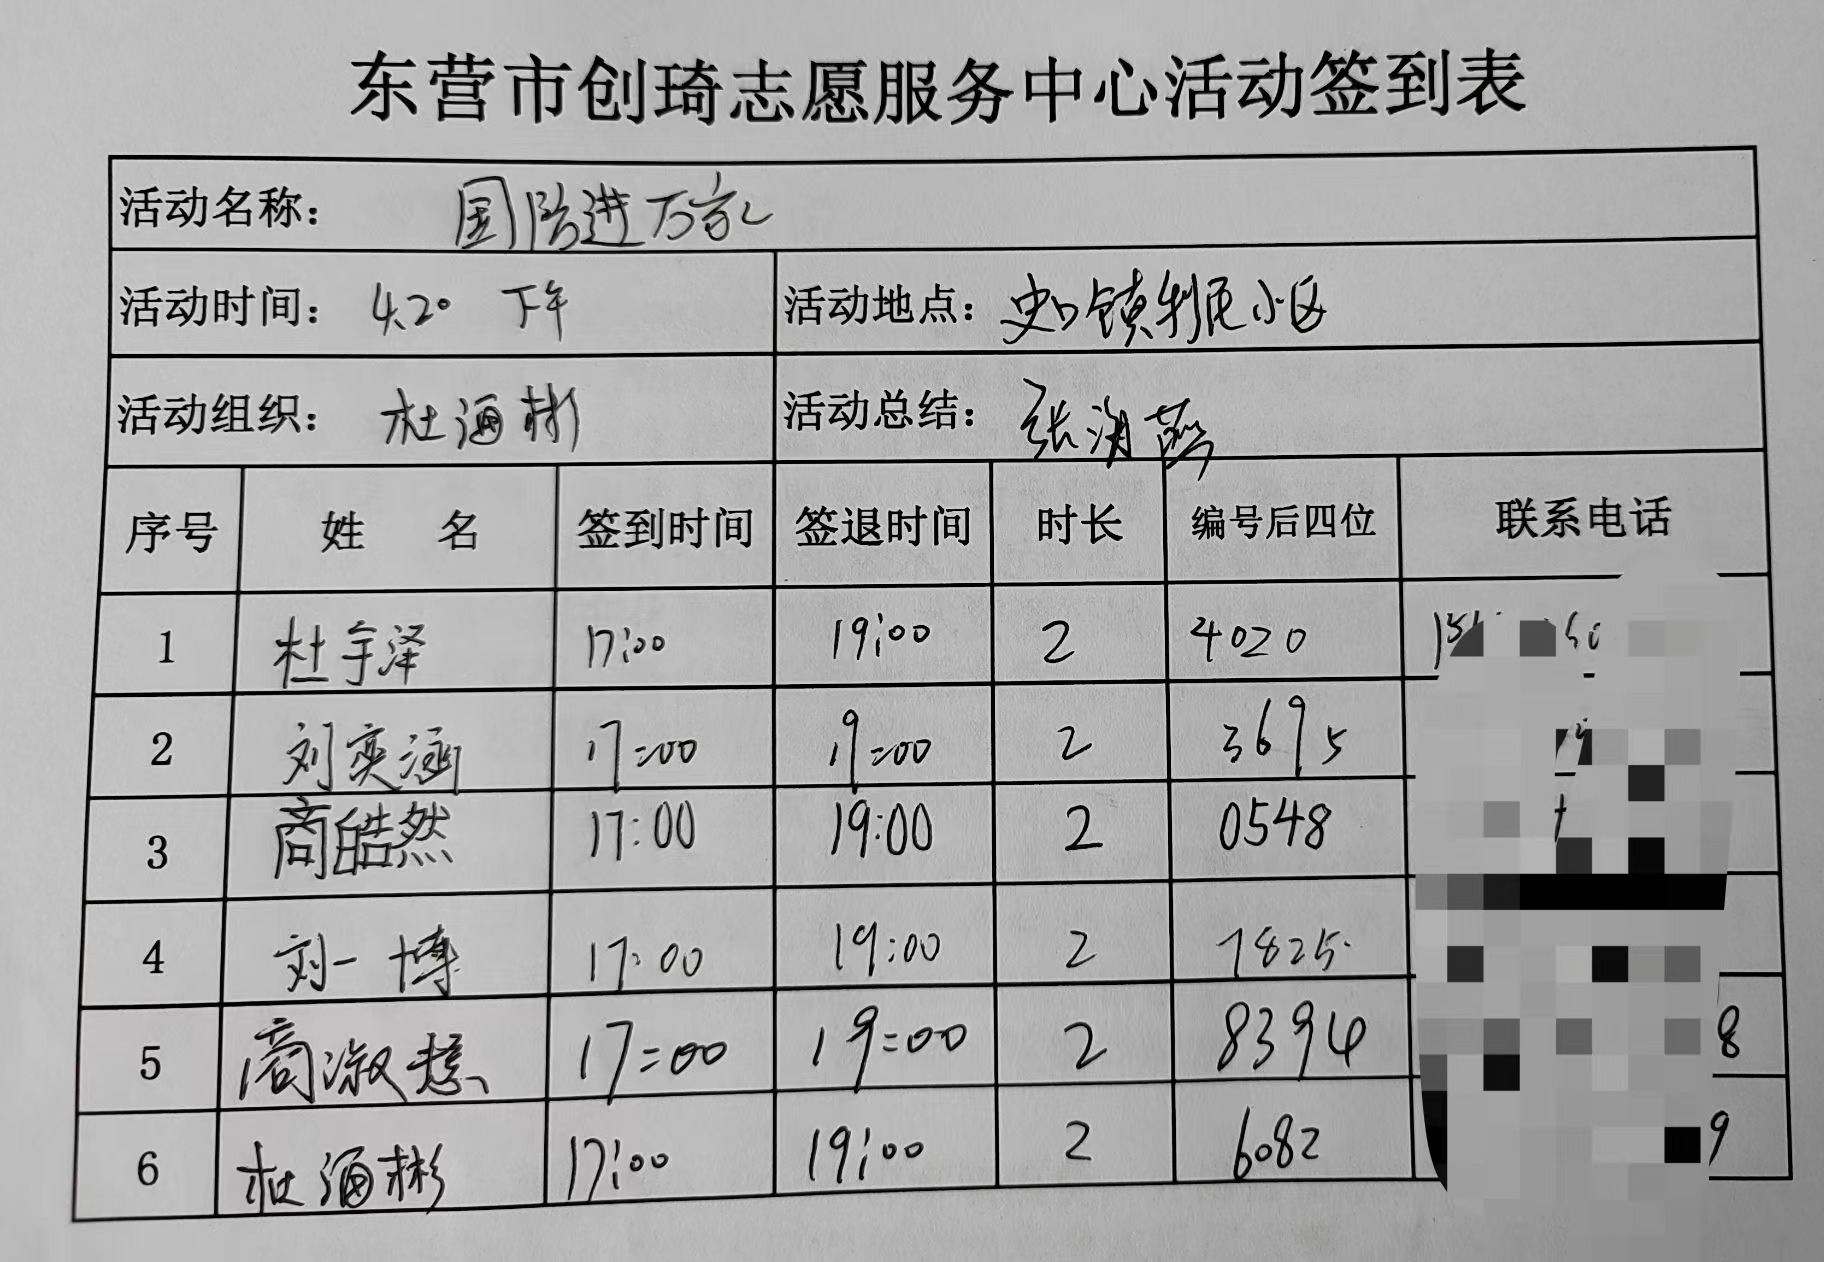 东营市创琦志愿服务中心活动签到表
活动名称： 国防进万家
活动时间： 4.20 下午 活动地点： 史口镇利民小区
活动组织： 杜海彬 活动总结： 张海燕
序号 姓 名 签到时间 签退时间 时长 编号后四位 联系电话
1 杜宇泽 17:00 19:00 2 4020
2 刘奕涵 17:00 19:00 2 3695
3 商皓然 17:00 19:00 2 0548
4 刘一博 17:00 19:00 2 7825
5 商淑慧 17:00 19:00 2 8394 8
6 杜海彬 17:00 19:00 2 6082 9